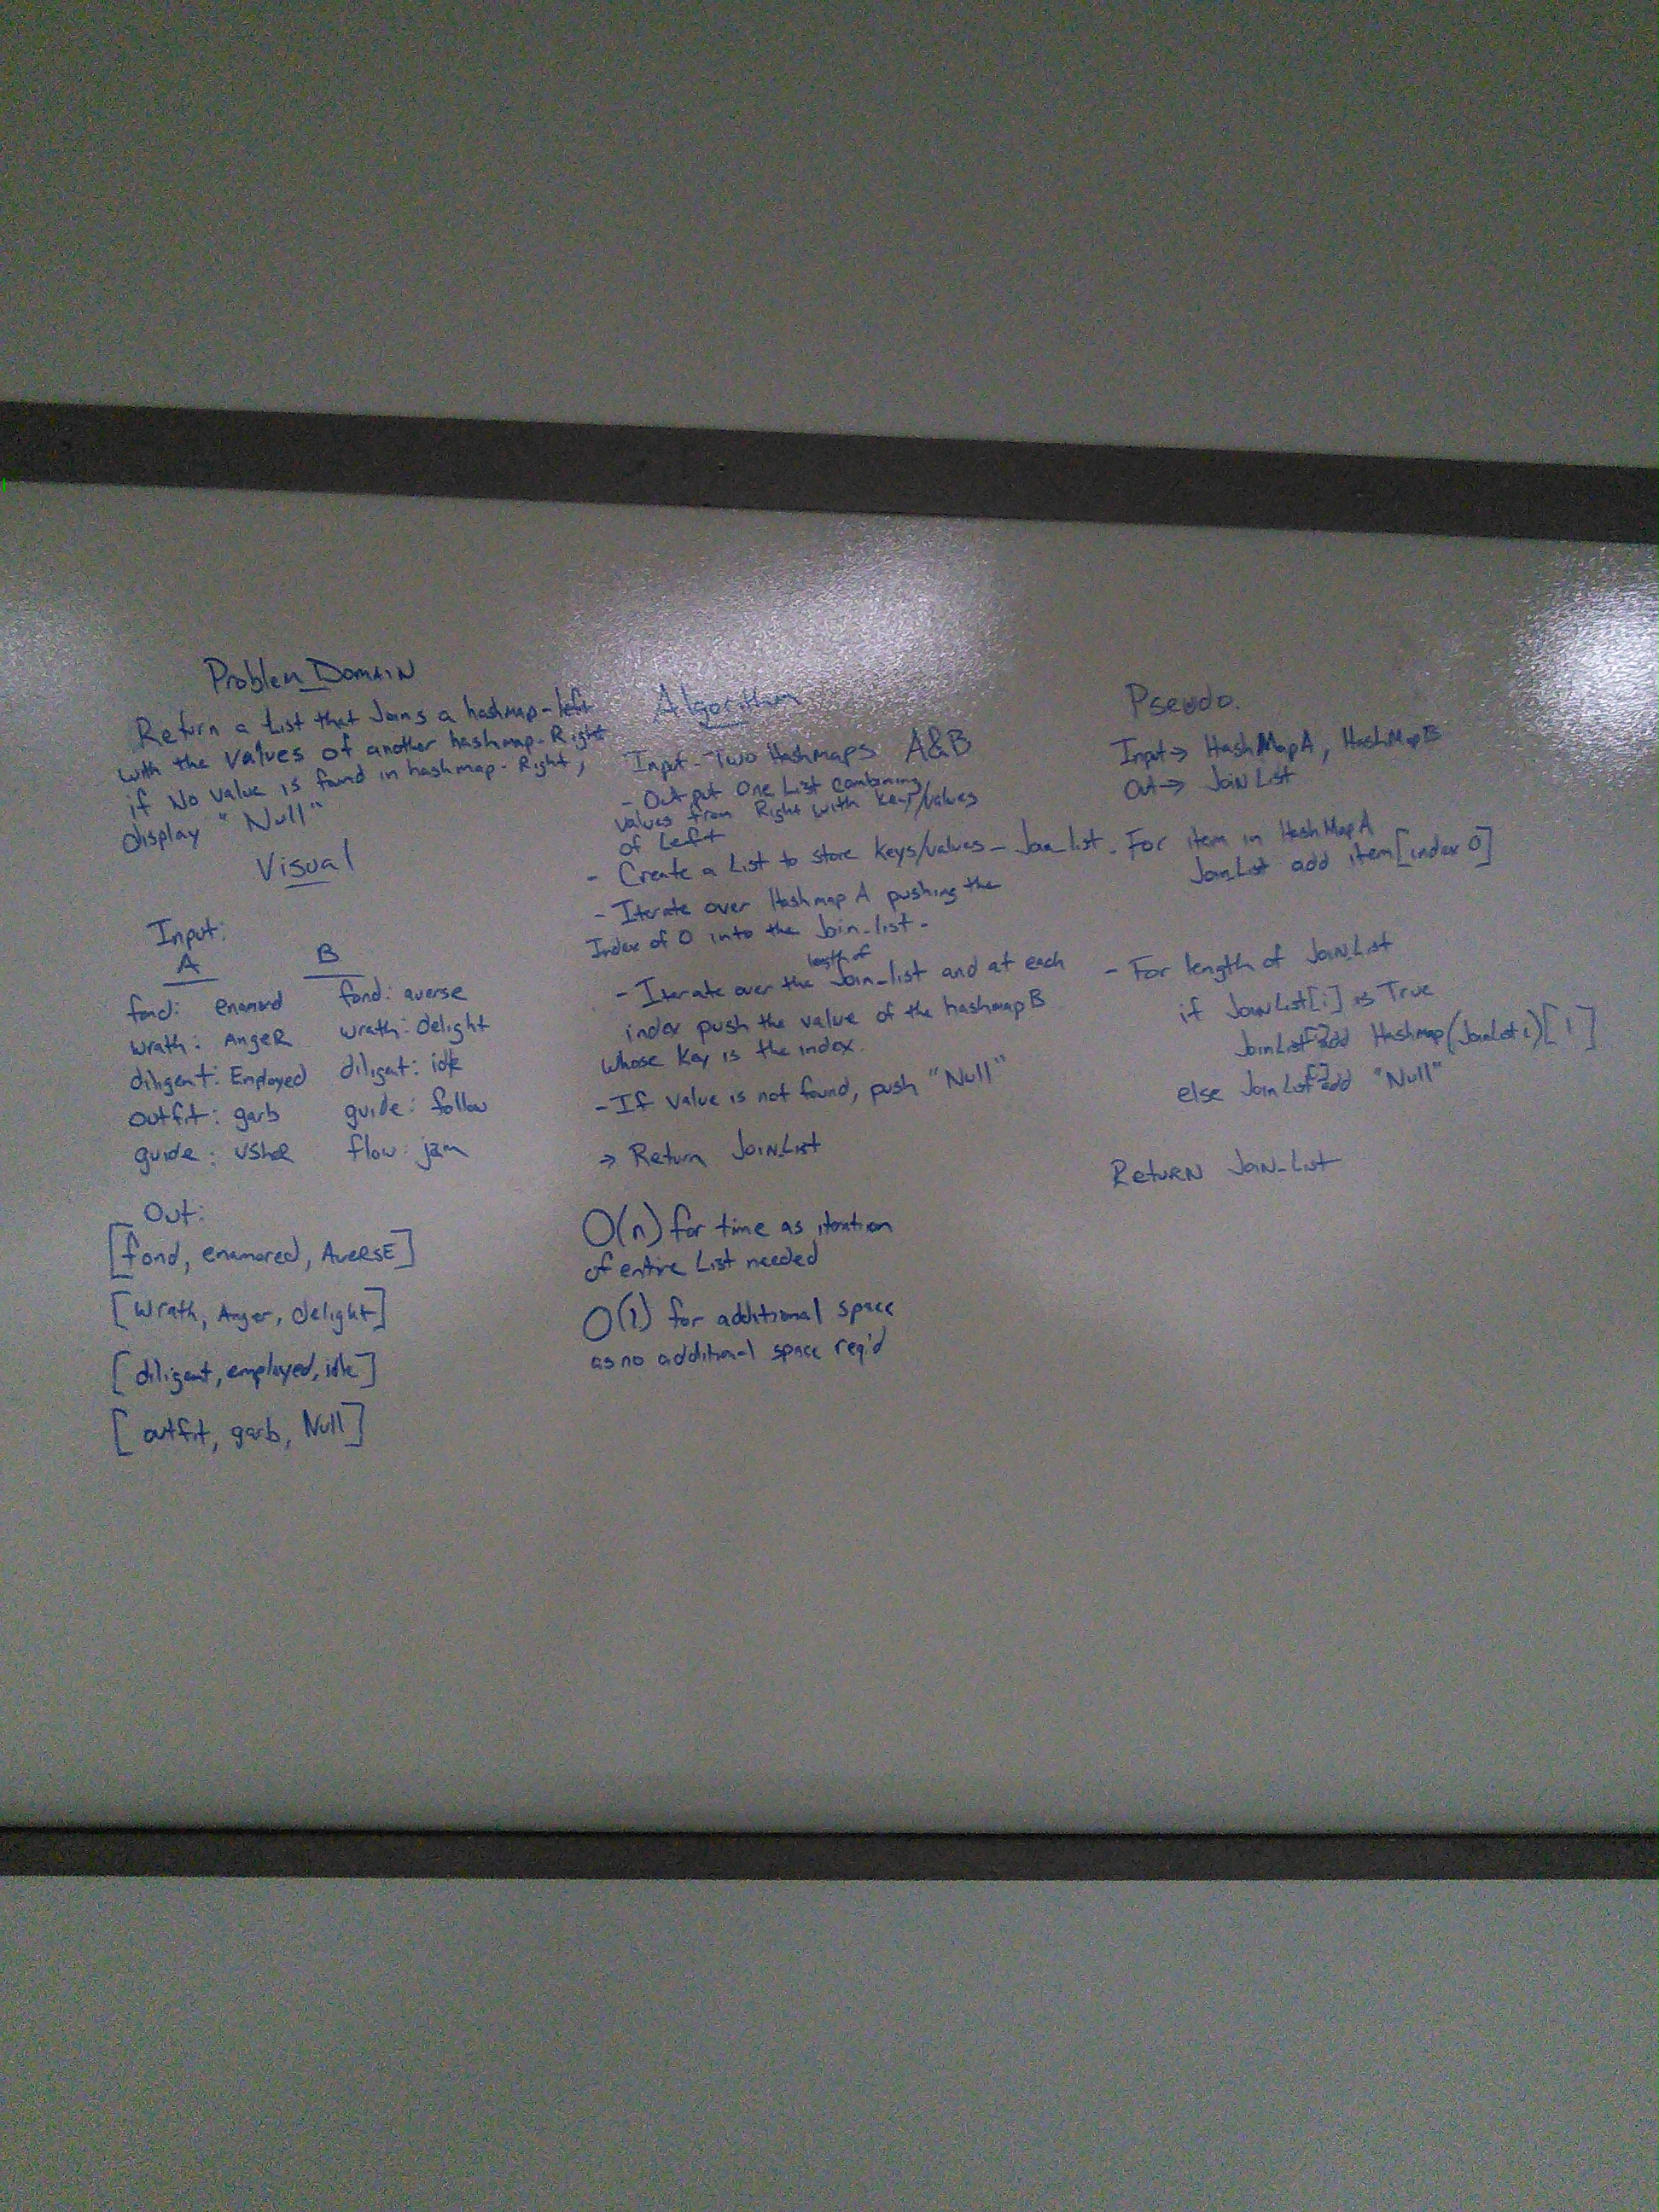 Problem Domain
Return a List that Joins a hashmap-left
with the values of another hashmap-Right
if No value is found in hashmap-Right,
display "Null"
Visual
Input:
A B
fond: enamord fond: averse
wrath: Anger wrath: delight
diligent: Employed diligent: idle
outfit: garb guide: follow
guide: usher flow: jam
Out:
[fond, enamored, Averse]
[wrath, Anger, delight]
[diligent, employed, idle]
[outfit, garb, Null]
Algorithm
Input - Two Hashmaps A&B
- Output One List combining
values from Right with key/values
of Left
- Create a List to store keys/values - Join_list.
- Iterate over Hashmap A pushing the
Index of 0 into the Join_list.
- Iterate over the length of Join_list and at each
index push the value of the hashmap B
whose key is the index.
- If value is not found, push "Null"
→ Return Join_List
O(n) for time as iteration
of entire List needed
O(1) for additional space
as no additional space req'd
Pseudo.
Input → HashMapA, HashMapB
Out → Join List
For item in HashMapA
Join_List add item[index 0]
- For length of Join_List
if JoinList[i] is True
JoinList[i] add Hashmap(JoinList i)[1]
else JoinList[i] add "Null"
Return Join_List